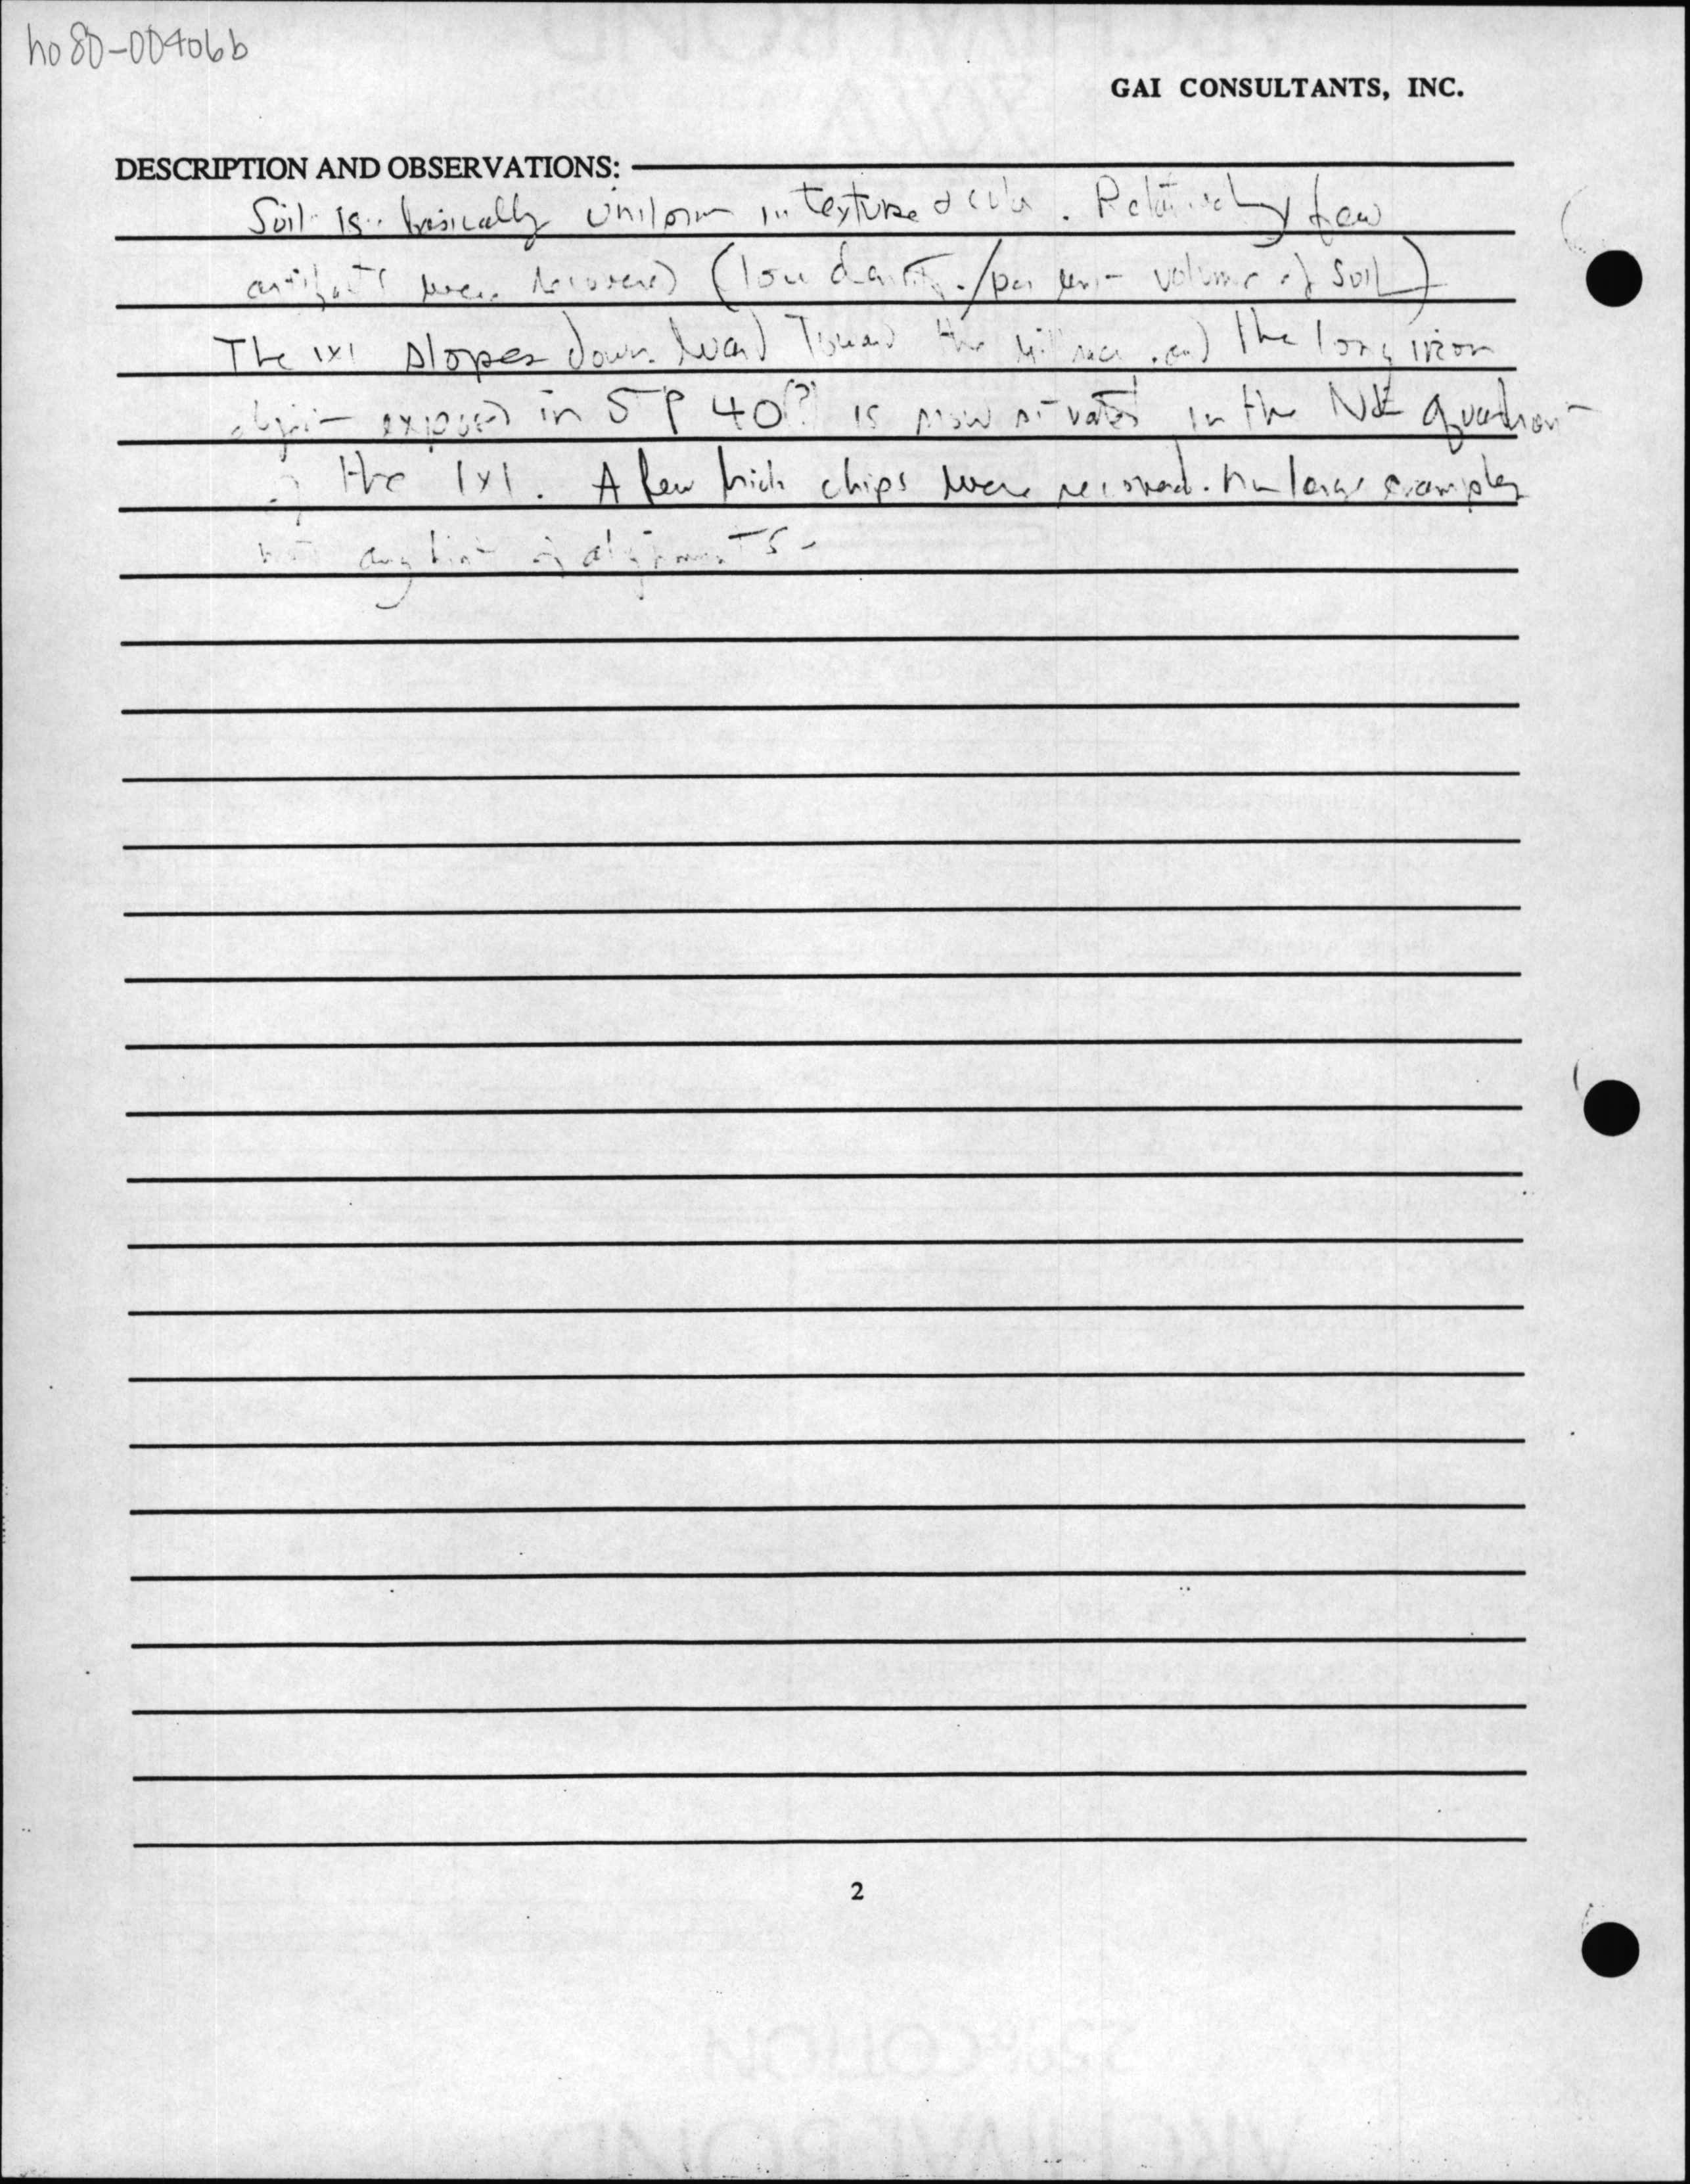 ho80-00406b
GAI CONSULTANTS, INC.
DESCRIPTION AND OBSERVATIONS:
Soil is basically uniform in texture & color. Relatively few
artifacts were recovered (low density/per unit volume of soil)
The 1x1 slopes downward toward the millrace and the long iron
object exposed in STP 40(?) is now situated in the NE quadrant
of the 1x1. A few brick chips were recovered. No large examples
any hint of alignments.
2